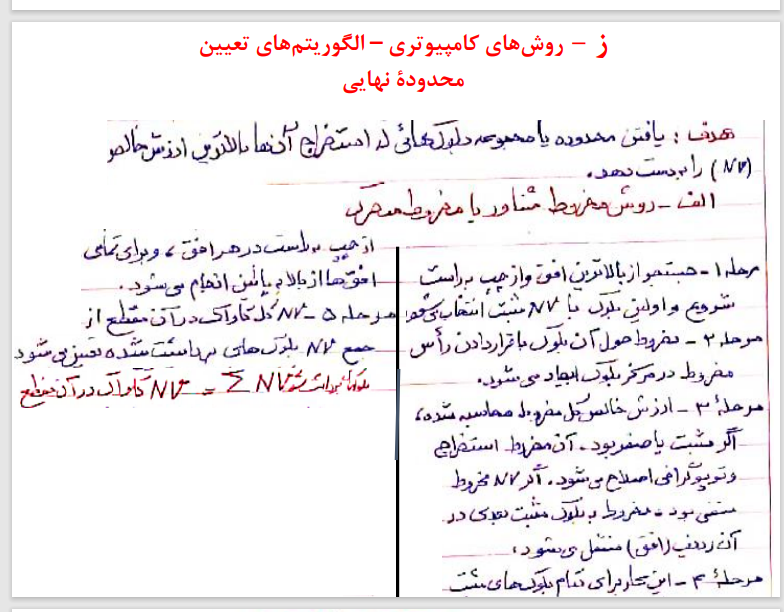 ز – روش‌های کامپیوتری – الگوریتم‌های تعیین
محدودهٔ نهایی
هدف : یافتن محدوده یا مجموعه بلوک‌هائی که استخراج آن‌ها بالاترین ارزش خالص
(NV) را بدست دهد.
الف - روش مخروط شناور یا مخروط متحرک
مرحله ۱ - جستجو از بالاترین افق و از چپ به راست
شروع و اولین بلوک با NV مثبت انتخاب می‌شود
مرحله ۲ - مخروط حول آن بلوک با قرار دادن رأس
مخروط در مرکز بلوک ایجاد می‌شود.
مرحلهٔ ۳ - ارزش خالص کل مخروط محاسبه شده،
اگر مثبت یا صفر بود - آن مخروط استخراج
و توپوگرافی اصلاح می‌شود. اگر NV مخروط
منفی بود - مخروط به بلوک مثبت بعدی در
آن ردیف (افق) منتقل می‌شود.
مرحلهٔ ۴ - این کار برای تمام بلوک‌های مثبت
از چپ به راست در هر افق، و برای تمامی
افق‌ها از بالا به پائین انجام می‌شود.
مرحله ۵ - NV کل کاواک در آن مقطع از
جمع NV بلوک‌های برداشت شده تعیین می‌شود
بلوکهای برداشت شده NV Σ = NV کاواک در آن مقطع